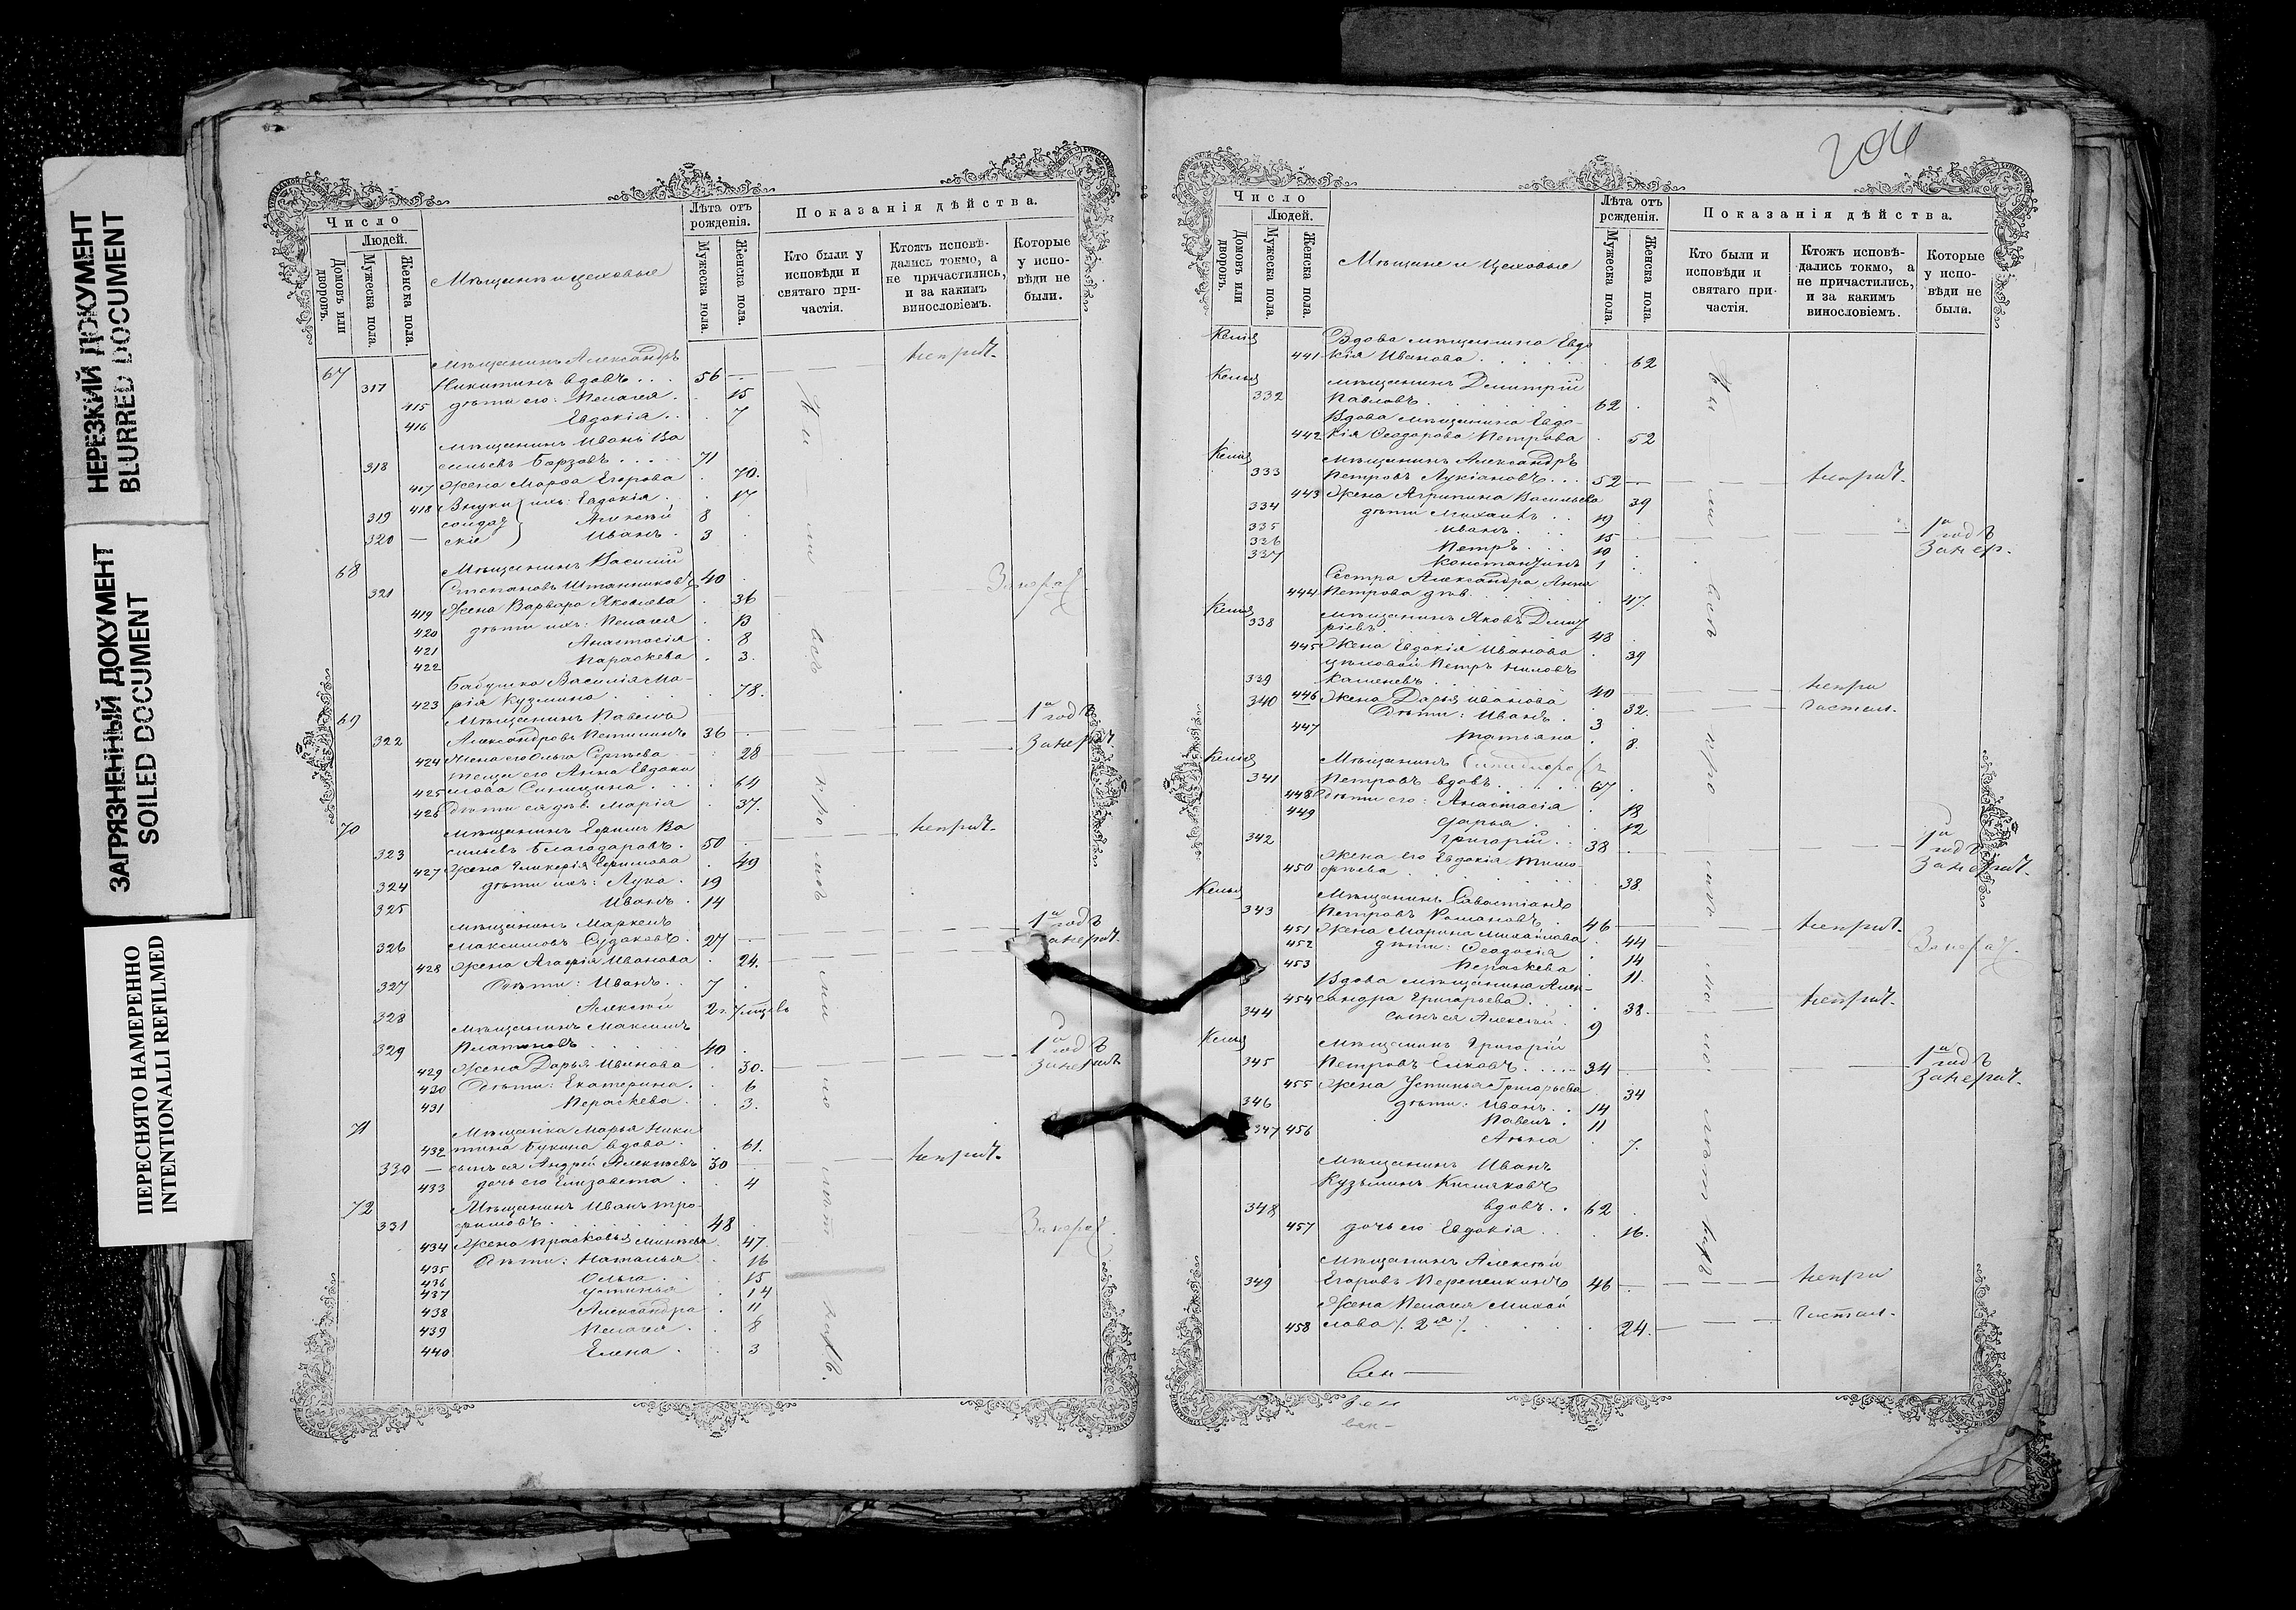 НЕРЕЗКИЙ ДОКУМЕНТ
BLURRED DOCUMENT
ЗАГРЯЗНЕННЫЙ ДОКУМЕНТ
SOILED DOCUMENT
ПЕРЕСНЯТО НАМЕРЕННО
INTENTIONALLI REFILMED
Число
Людей.
Домовъ или дворовъ.
Мужеска пола.
Женска пола.
Мѣщане и цеховые
Лѣта отъ рожденія.
Мужеска пола.
Женска пола.
Показанія дѣйства.
Кто были у исповѣди и святаго причастія.
Ктожъ исповѣдались токмо, а не причастились, и за какимъ винословіемъ.
Которые у исповѣди не были.
Мѣщанинъ Александръ
67 317 Никитинъ вдовъ 56 неприч.
415 дѣти его: Пелагея 15
416 Евдокія 7
Мѣщанинъ Иванъ Ва
318 сильевъ Борзовъ 71
417 Жена Марѳа Егорова 70.
418 Внуки ихъ: Евдокія 17
319 солдат Алексѣй 8
320 — скіе Иванъ 3
68 Мѣщанинъ Василій
321 Степановъ Штанниковъ 40
419 Жена Варвара Яковлева 36
420 дѣти ихъ: Пелагея 13
421 Анастасія 8
422 Параскева 3.
Бабушка Василія Ма-
423 рія Кузмина 78.
69 Мѣщанинъ Павелъ 1й годъ
322 Александровъ 36 занерач.
424 Жена его Ольга Сергѣева 28
теща его Анна Евдоки
425 мова Синицина 64
426 Дѣти ея дѣв. Марія 37.
70 Мѣщанинъ Ефимъ Ва неприч.
323 сильевъ Благодаровъ 50
427 Жена Гликерія Ефимова 49
324 дѣти ихъ: Лука 19
325 Иванъ 14
мѣщанинъ Маркелъ 1й годъ
326 Максимовъ Судаковъ 27 занерач.
428 Жена Агафія Иванова 24.
327 Дѣти: Иванъ 7
328 Алексѣй 2
мѣщанинъ Максимъ
329 Платоновъ 40 1й годъ
429 Жена Дарья Иванова 30. занерач.
430 Дѣти: Екатерина 6
431 Пераскева 3.
71 Мѣщанка Марья Ники
432 тина Букина вдова 61.
330 — сынъ ея Андрей Алексѣевъ 30 неприч.
433 дочь его Елизавета 4
72 Мѣщанинъ Иванъ Тро-
331 фимовъ 48
434 Жена Прасковья 47
435 Дѣти: Наталья 16
436 Ольга 15
437 Устинья 14
438 Александра 11
439 Пелагея 8
440 Елена 3
Число
Людей.
Домовъ или дворовъ.
Мужеска пола.
Женска пола.
Мѣщане и Цеховые
Лѣта отъ рсжденія.
Мужеска пола.
Женска пола.
Показанія дѣйства.
Кто были и исповѣди и святаго причастія.
Ктожъ исповѣдались токмо, а не причастились, и за какимъ винословіемъ.
Которые у исповѣди не были.
Келія Вдова мѣщанина Евдо
441 кія Иванова 62
Келья мѣщанинъ Димитрій
332 Павловъ 62
Вдова мѣщанина Евдо-
442 кія Ѳеодорова Петрова 52
Келія Мѣщанинъ Александръ
333 Петровъ Лукіановъ 52 неприч.
443 Жена Агрипина Васильева 39
334 дѣти Михаилъ 19
335 Иванъ 15 1й годъ
336 Петръ 10 Занер.
337 Константинъ 1
Сестра Александра Анна
444 Петрова дѣв. 47.
Келія мѣщанинъ Яковъ Дмит
338 ріевъ 48
445 Жена Евдокія Иванова 39
цеховой Петръ Ниловъ
339 Каменевъ 40 непри
340 446 Жена Дарья Иванова 32. частил.
Дѣти: Иванъ 3
447 Татьяна 8.
Келія Мѣщанинъ
341 Петровъ вдовъ 67
448 Дѣти его: Анастасія 18
449 Дарья 12
342 Григорій 38 1й годъ
Жена его Евдокія Тимо занерач.
450 фѣева 38.
Келья Мѣщанинъ Савостіанъ
343 Петровъ Романовъ 46 неприч.
451 Жена Марина Михайлова 44
452 дѣти: Ѳеодосія 14
453 Пераскева 11.
Вдова мѣщанина Алек-
454 сандра Григорьева 38. неприч.
344 сынъ ея Алексѣй 9
Келія Мѣщанинъ Григорій 1й годъ
345 Петровъ Елковъ 34 занерач.
455 Жена Устинья Григорьева 34
346 дѣти: Иванъ 14
347 456 Павелъ 11
Анна 7.
Мѣщанинъ Иванъ
Кузьминъ Кисляковъ
348 вдовъ 62
457 дочь его Евдокія 16.
Мѣщанинъ Алексѣй
349 Егоровъ Перепелкинъ 46 непри
Жена Пелагея Михай
458 лова /. 2я /. 24. частил.